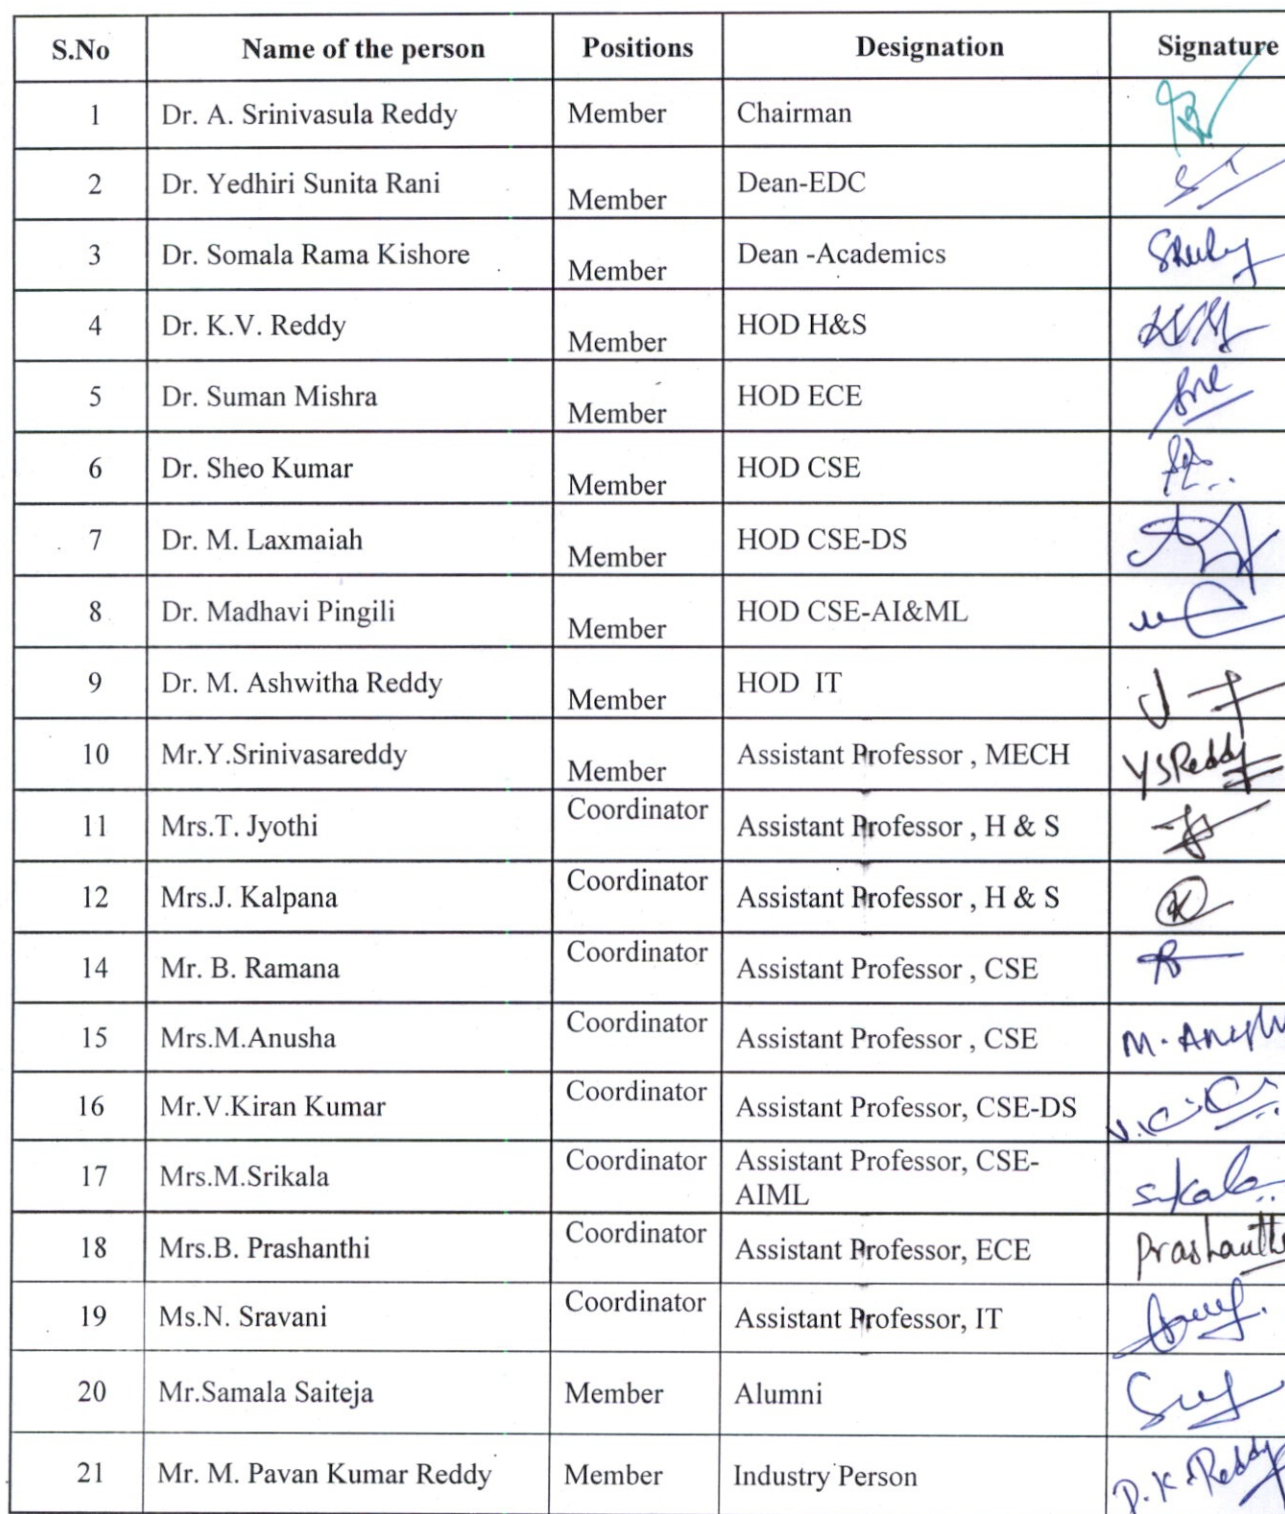 S.No Name of the person Positions Designation Signature
1 Dr. A. Srinivasula Reddy Member Chairman
2 Dr. Yedhiri Sunita Rani Member Dean-EDC
3 Dr. Somala Rama Kishore Member Dean -Academics
4 Dr. K.V. Reddy Member HOD H&S
5 Dr. Suman Mishra Member HOD ECE
6 Dr. Sheo Kumar Member HOD CSE
7 Dr. M. Laxmaiah Member HOD CSE-DS
8 Dr. Madhavi Pingili Member HOD CSE-AI&ML
9 Dr. M. Ashwitha Reddy Member HOD IT
10 Mr.Y.Srinivasareddy Member Assistant Professor , MECH YSReddy
11 Mrs.T. Jyothi Coordinator Assistant Professor , H & S
12 Mrs.J. Kalpana Coordinator Assistant Professor , H & S
14 Mr. B. Ramana Coordinator Assistant Professor , CSE
15 Mrs.M.Anusha Coordinator Assistant Professor , CSE
16 Mr.V.Kiran Kumar Coordinator Assistant Professor, CSE-DS
17 Mrs.M.Srikala Coordinator Assistant Professor, CSE-
AIML
18 Mrs.B. Prashanthi Coordinator Assistant Professor, ECE
19 Ms.N. Sravani Coordinator Assistant Professor, IT
20 Mr.Samala Saiteja Member Alumni
21 Mr. M. Pavan Kumar Reddy Member Industry Person P.K.Reddy